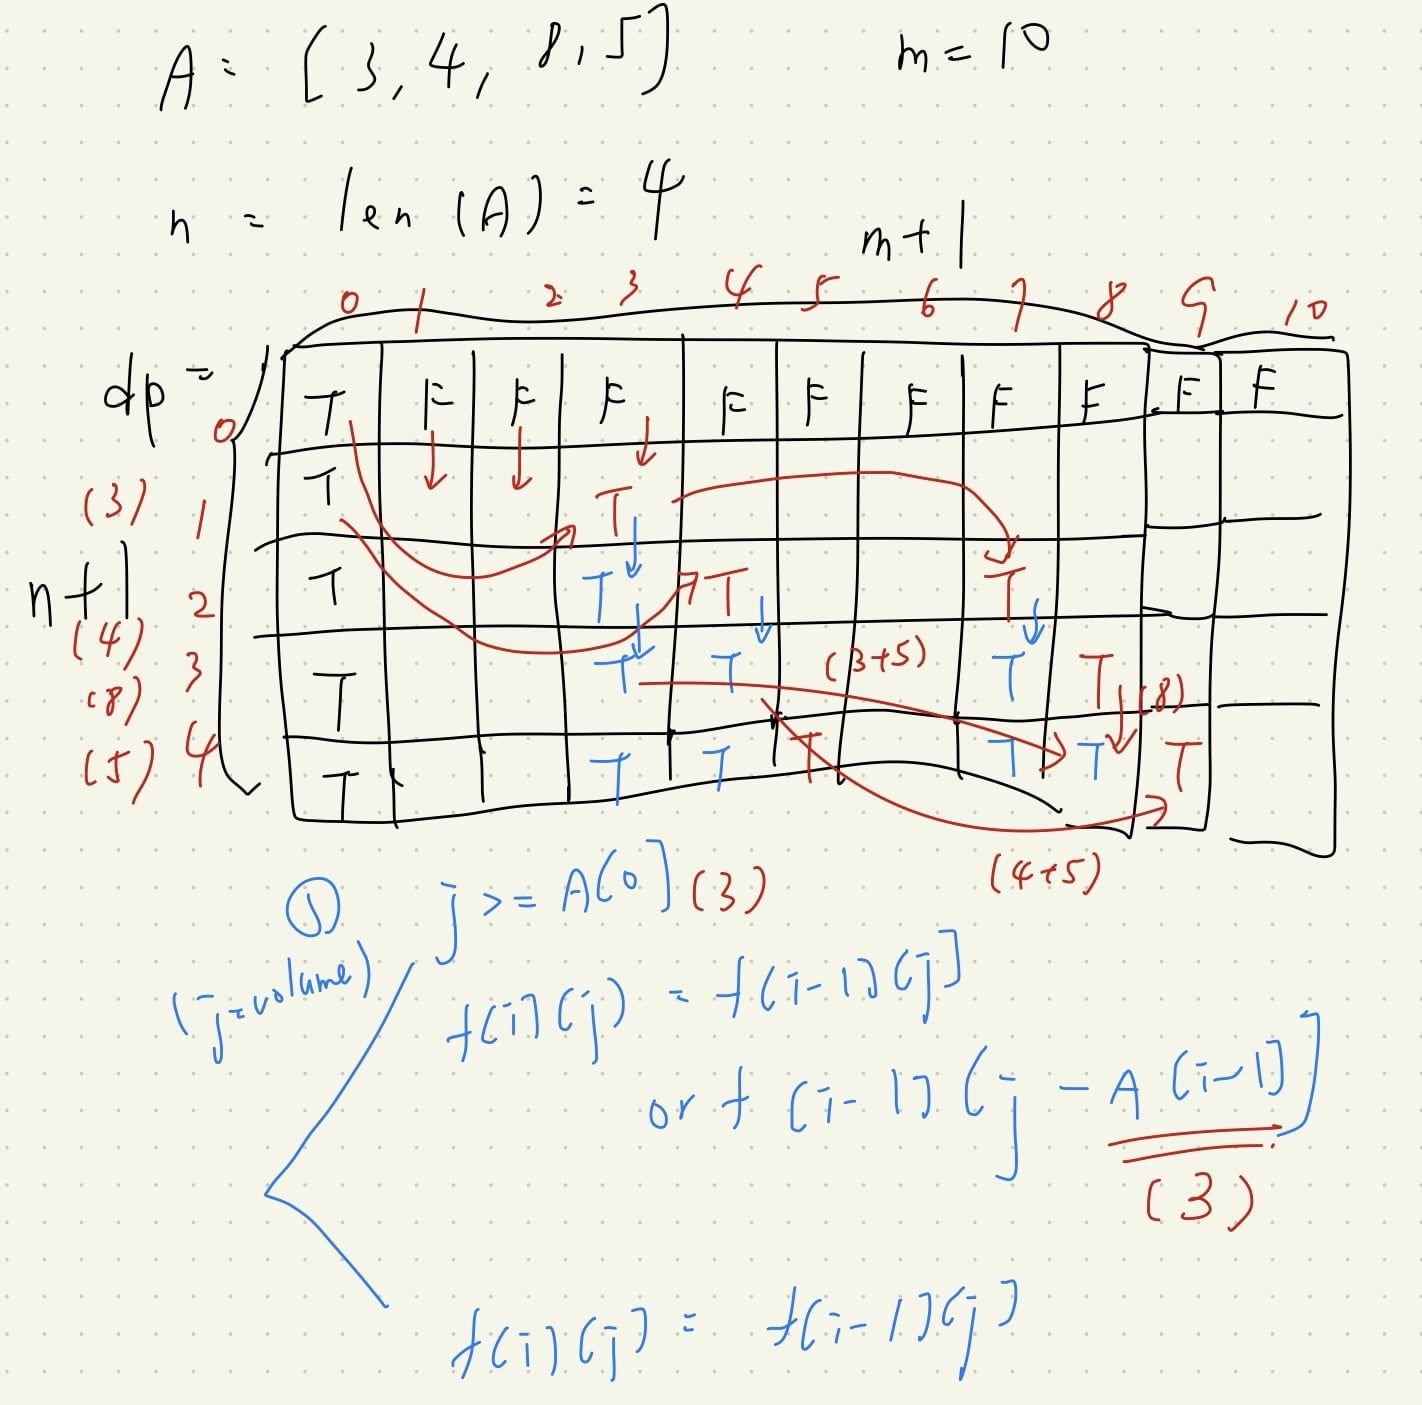 A = [3, 4, 8, 5] m = 10
n = len (A) = 4
m+1
0 1 2 3 4 5 6 7 8 9 10
dp =
0 T F F F F F F F F F F
(3) 1 T T
n+1
2 T T T T
(4)
(3+5)
(8) 3 T T T T T (8)
(5) 4 T T T T T T T
(4+5)
① j >= A[0] (3)
(j=volume)
f[i][j] = f[i-1][j]
or f [i-1][j - A[i-1]]
(3)
f[i][j] = f[i-1][j]